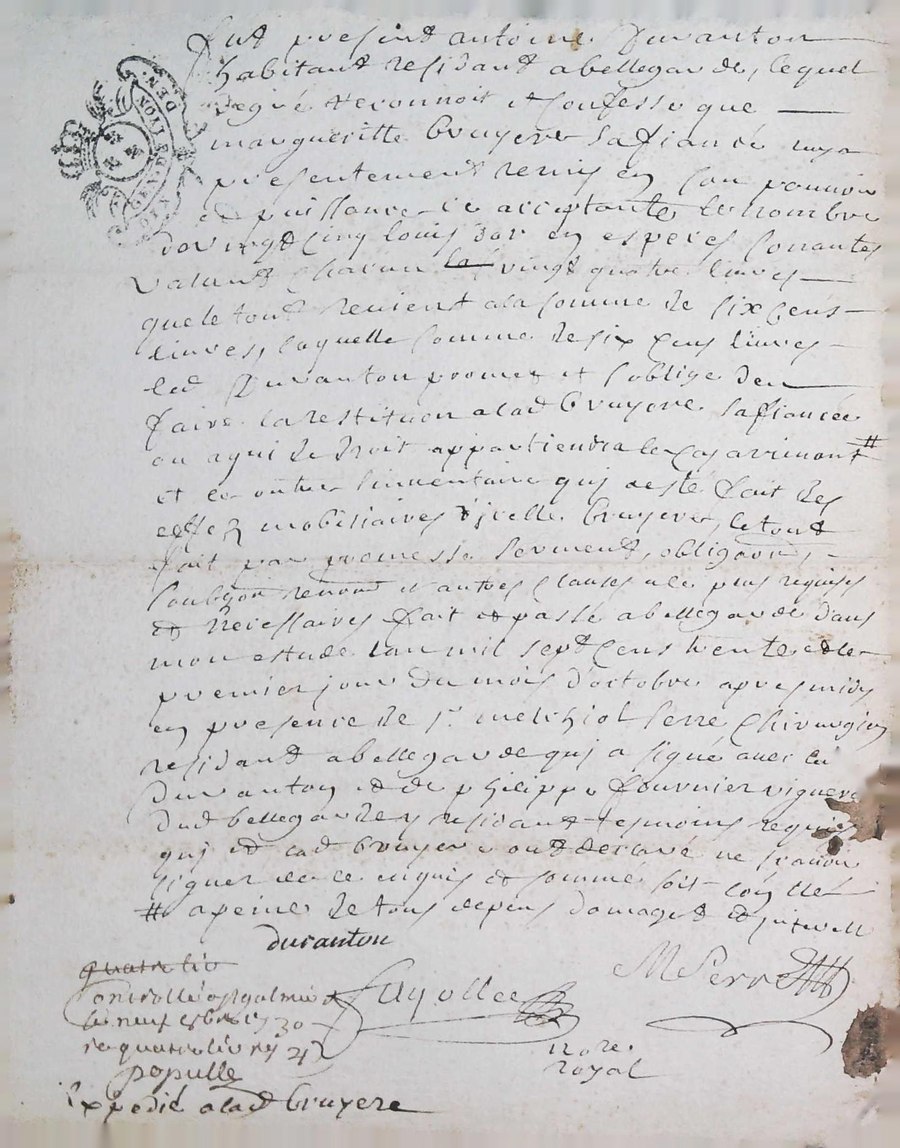 fut present antoine Duranton
habitant residant a bellegarde, lequel
de gré reconnoit et confesse que
margueritte bruyere sa fiancée luy a
presentement remis en son pouvoir
et puissance ce acceptante le nombre
de vingt cinq louis d'or en especes sonantes
valant chacun vingt quatre livres
que le tout revient a la somme de six cens
livres, laquelle somme de six cens livres
led Duranton promet et s'oblige d'en
faire la restitution a lad bruyere sa fiancée
ou a qui de droit appartiendra le cas arrivant #
et ce outre l'inventaire qui a esté fait des
effez mobiliaires d'icelle bruyere, le tout
fait par promesse serment, obligaon,
renon et autres clauses a ce plus requises
et necessaires fait et passé a bellegarde dans
mon estude l'an mil sept cens trente et le
premier jour du mois d'octobre apres midy
en presence de sr melchiol Perre chirurgien
residant a bellegarde qui a signé avec led
Duranton et de philippe fournier vigneron
dud bellegarde y residant tesmoins requis
qui et lad bruyere ont declaré ne scavoir
signer de ce enquis et sommé soit
# a peine de tous depens domages et
duranton
quatre liv
M Perre
Controllé a st galmier
Fayolle
le neuf 1730
quatre livres
nore
royal
populle
Expedié a lad bruyere
LYON